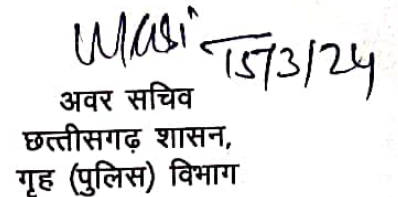 15/3/24
अवर सचिव
छत्तीसगढ़ शासन,
गृह (पुलिस) विभाग